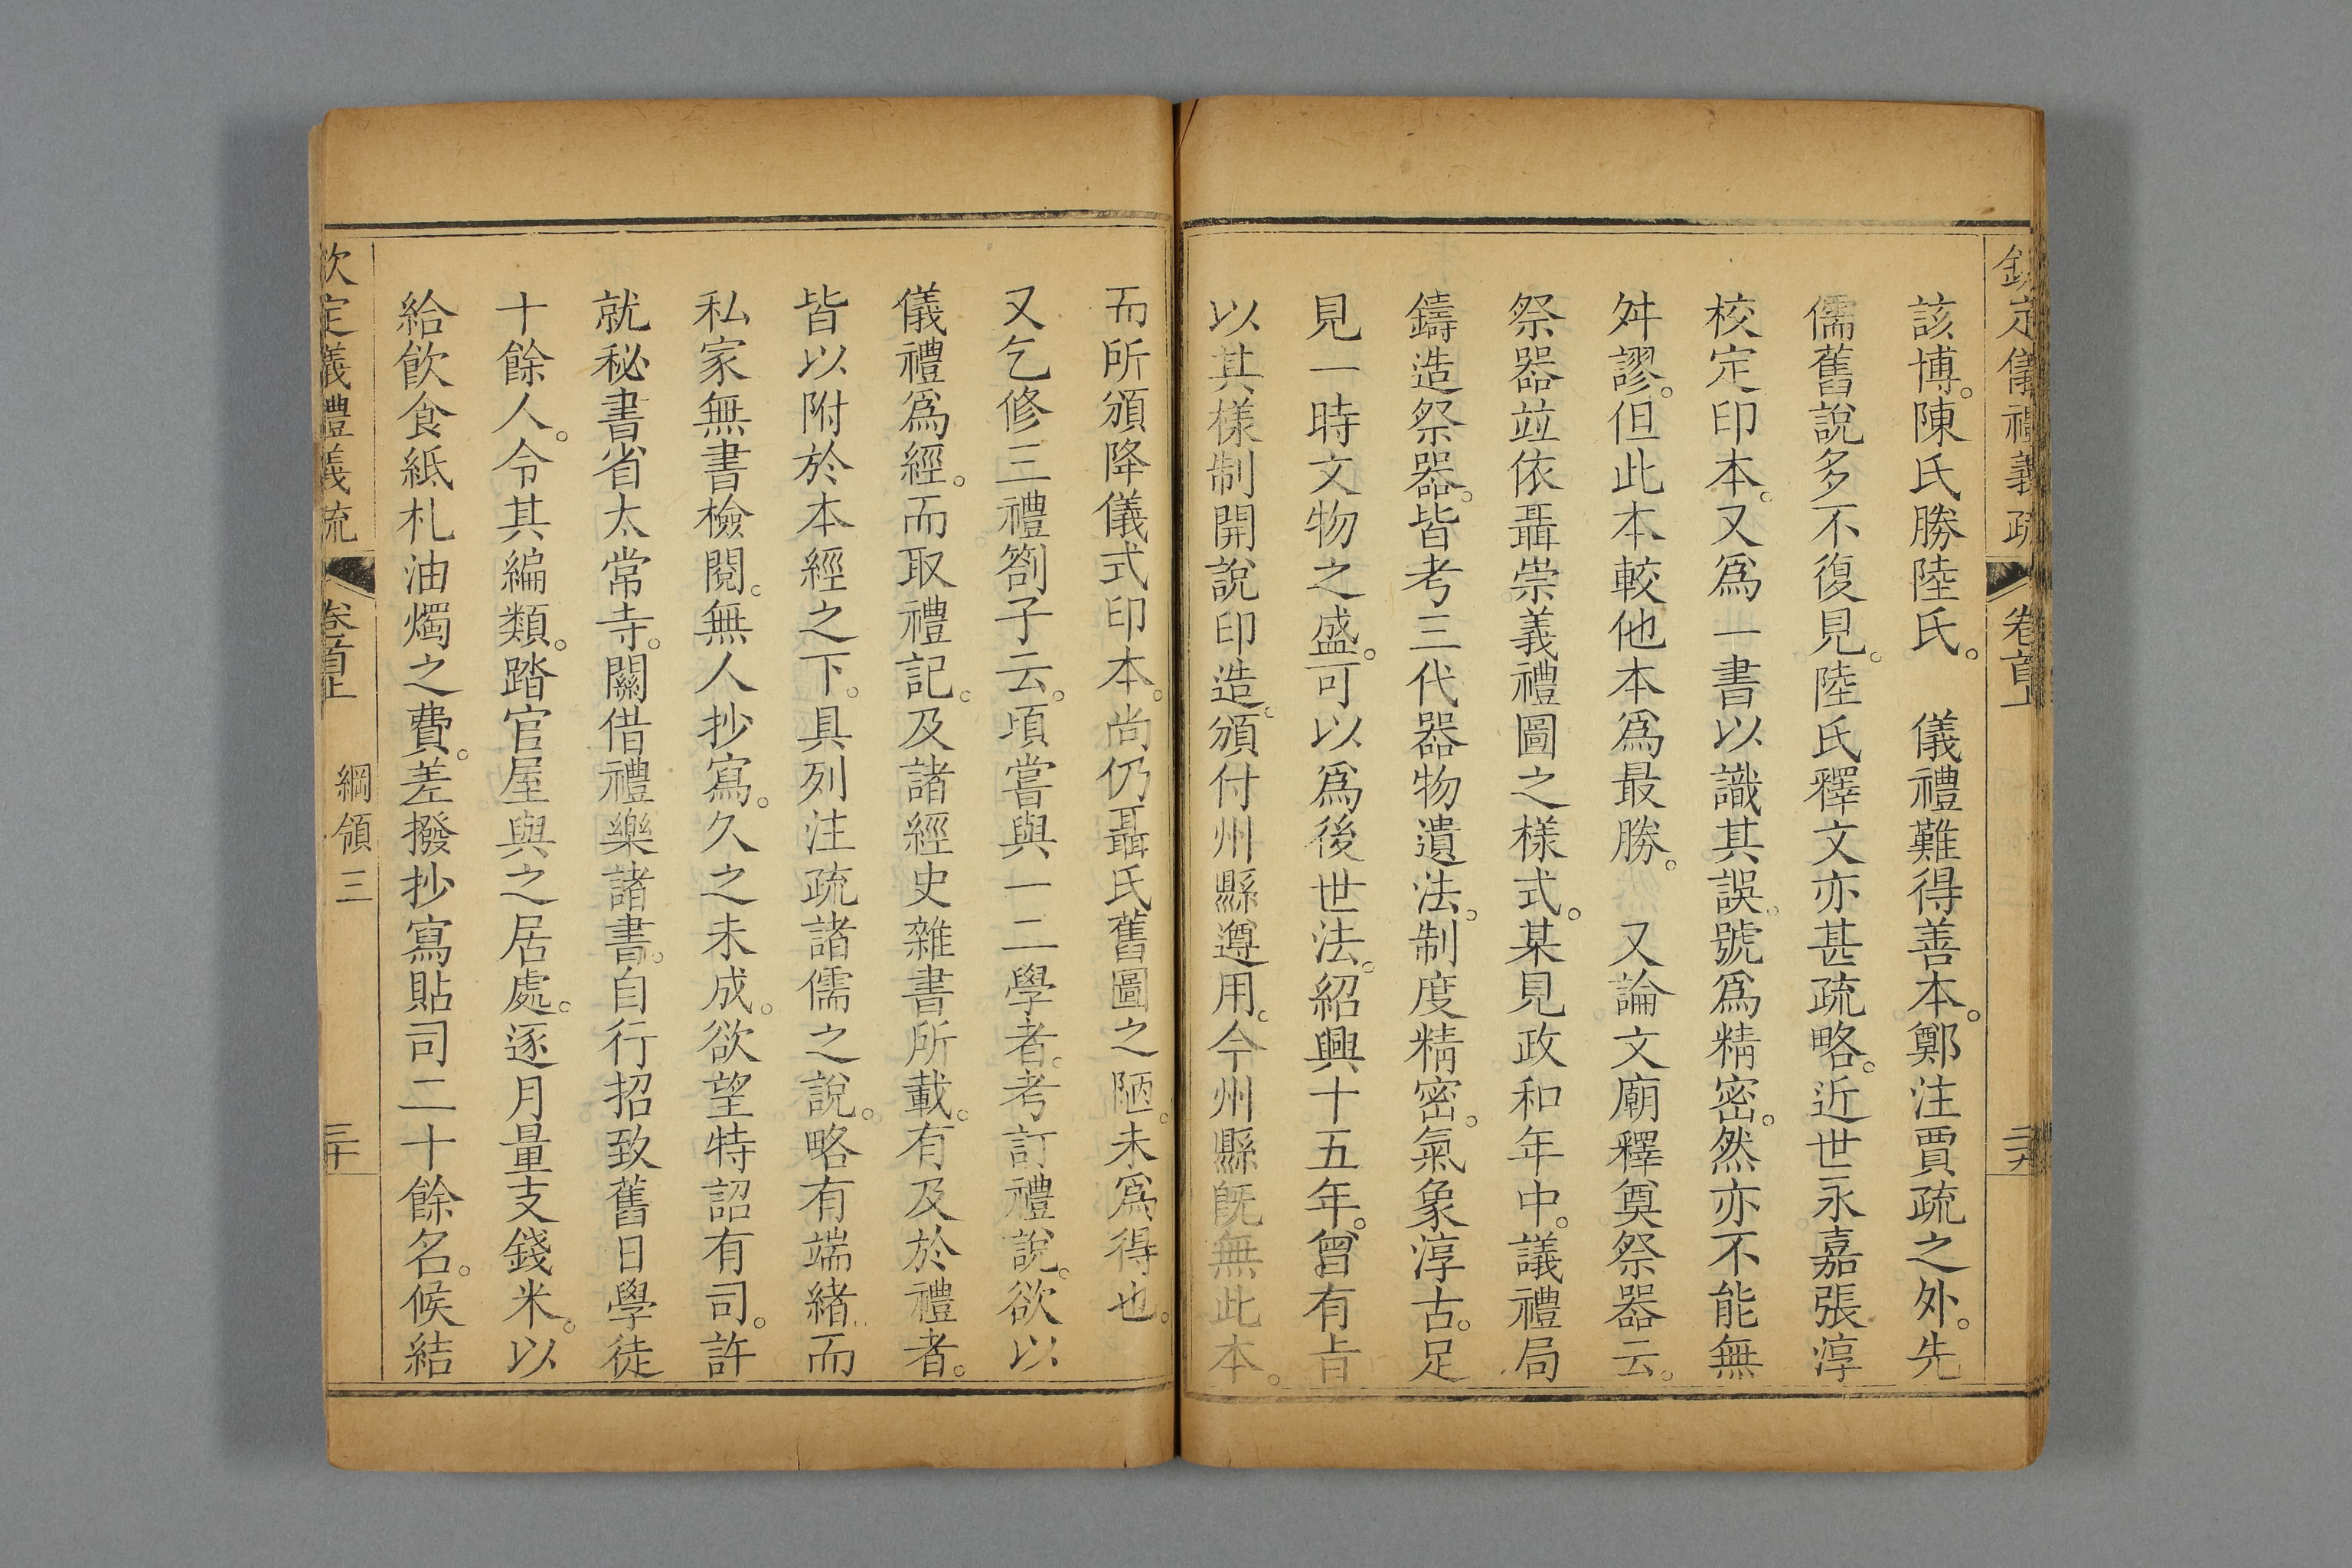 欽定儀禮義疏 卷首上 二九
該博。陳氏勝陸氏。 儀禮難得善本。鄭注賈疏之外。先
儒舊說多不復見。陸氏釋文亦甚疏略。近世永嘉張淳
校定印本。又爲一書以識其誤。號爲精密。然亦不能無
舛謬。但此本較他本爲最勝。 又論文廟釋奠祭器云。
祭器並依聶崇義禮圖之樣式。某見政和年中。議禮局
鑄造祭器。皆考三代器物遺法。制度精密。氣象淳古。足
見一時文物之盛。可以爲後世法。紹興十五年。曾有旨
以其樣制開說印造。頒付州縣遵用。今州縣旣無此本。
而所頒降儀式印本。尚仍聶氏舊圖之陋。未爲得也。
又乞修三禮劄子云。頃嘗與一二學者。考訂禮說。欲以
儀禮爲經。而取禮記。及諸經史雜書所載。有及於禮者。
皆以附於本經之下。具列注疏諸儒之說。略有端緒。而
私家無書檢閱。無人抄寫。久之未成。欲望特詔有司。許
就秘書省太常寺。關借禮樂諸書。自行招致舊日學徒
十餘人。令其編類。踏官屋與之居處。逐月量支錢米。以
給飲食紙札油燭之費。差撥抄寫貼司二十餘名。候結
欽定儀禮義疏 卷首上 綱領三 三十